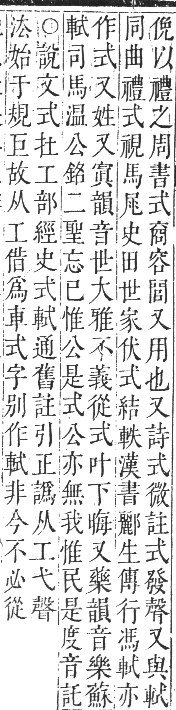 俛以禮之周書式商容閭又用也又詩式微註式發聲又與軾
同曲禮式視馬尾史田世家伏式結軼漢書酈生傳行馮軾亦
作式又姓又窴韻音世大雅不義從式叶下晦又藥韻音樂蘇
軾司馬温公銘二聖忘己惟公是式公亦無我惟民是度音託
○說文式在工部經史式軾通舊註引正譌从工弋聲
法始于規巨故从工借爲車式字别作軾非今不必從